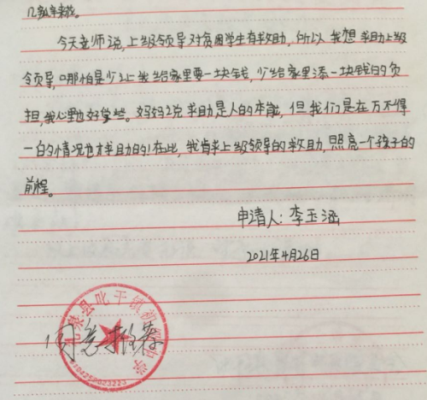 今天老师说,上级领导对贫困学生有救助,所以我想求助上级
领导,哪怕是少上我给家里要一块钱,少给家里添一块钱的负
担,我心里也好受些。妈妈说求助是人的本能,但我们是在万不得
一的情况也才求助的!在此,我肯求上级领导的救助,照亮一个孩子的
前程。
申请人:李玉涵
2021年4月26日
同意推荐